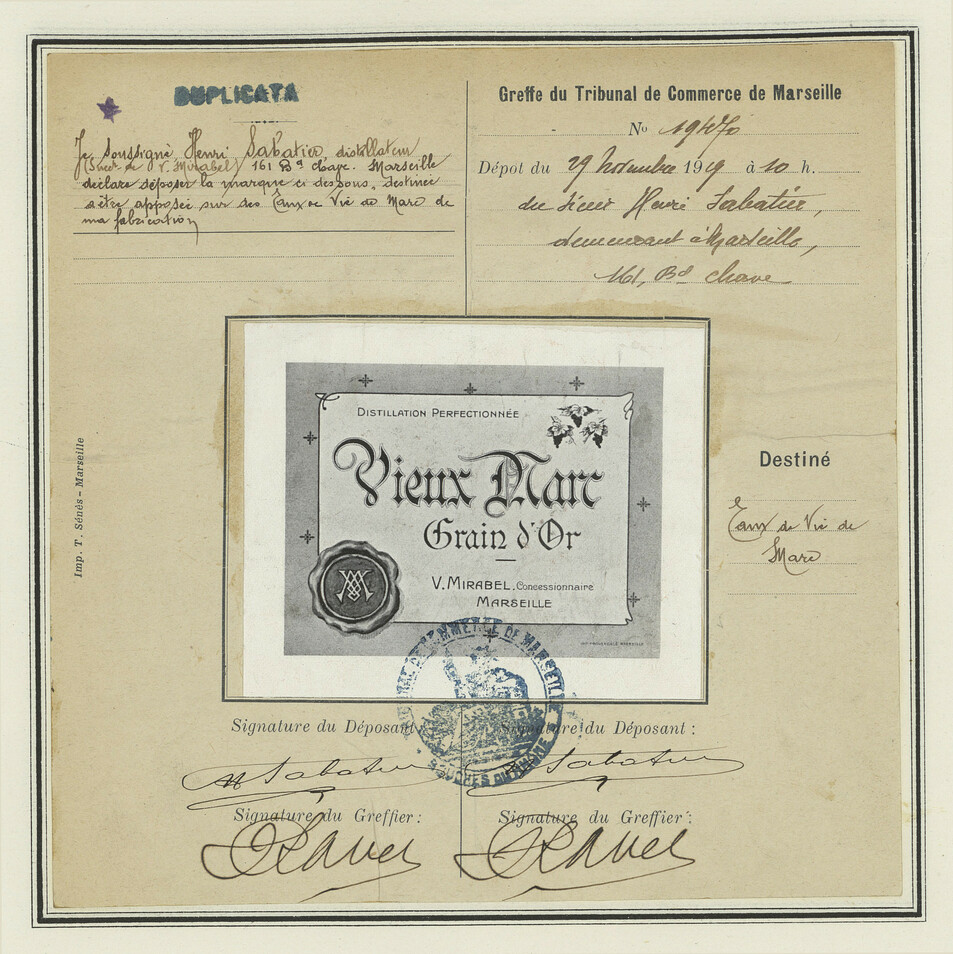 DUPLICATA
Je soussigné, Henri Sabatier, distillateur
(Succr de V. Mirabel) 161 Bd Chave. Marseille
déclare déposer la marque ci dessous, destinée
à être apposée sur des Eaux de Vie de Marc de
ma fabrication
Greffe du Tribunal de Commerce de Marseille
No
Dépôt du 29 Novembre 1919 à 10 h.
du sieur Henri Sabatier,
demeurant à Marseille,
161, Bd Chave
Imp. T. Sénès - Marseille
DISTILLATION PERFECTIONNÉE
Vieux Marc
Grain d'Or
V. MIRABEL, Concessionnaire
MARSEILLE
Destiné
Eaux de Vie de
Marc
COMMERCE DE MARSEILLE
BOUCHES DU RHÔNE
Signature du Déposant
Signature du Déposant :
H Sabatier
Sabatier
Signature du Greffier :
Signature du Greffier :